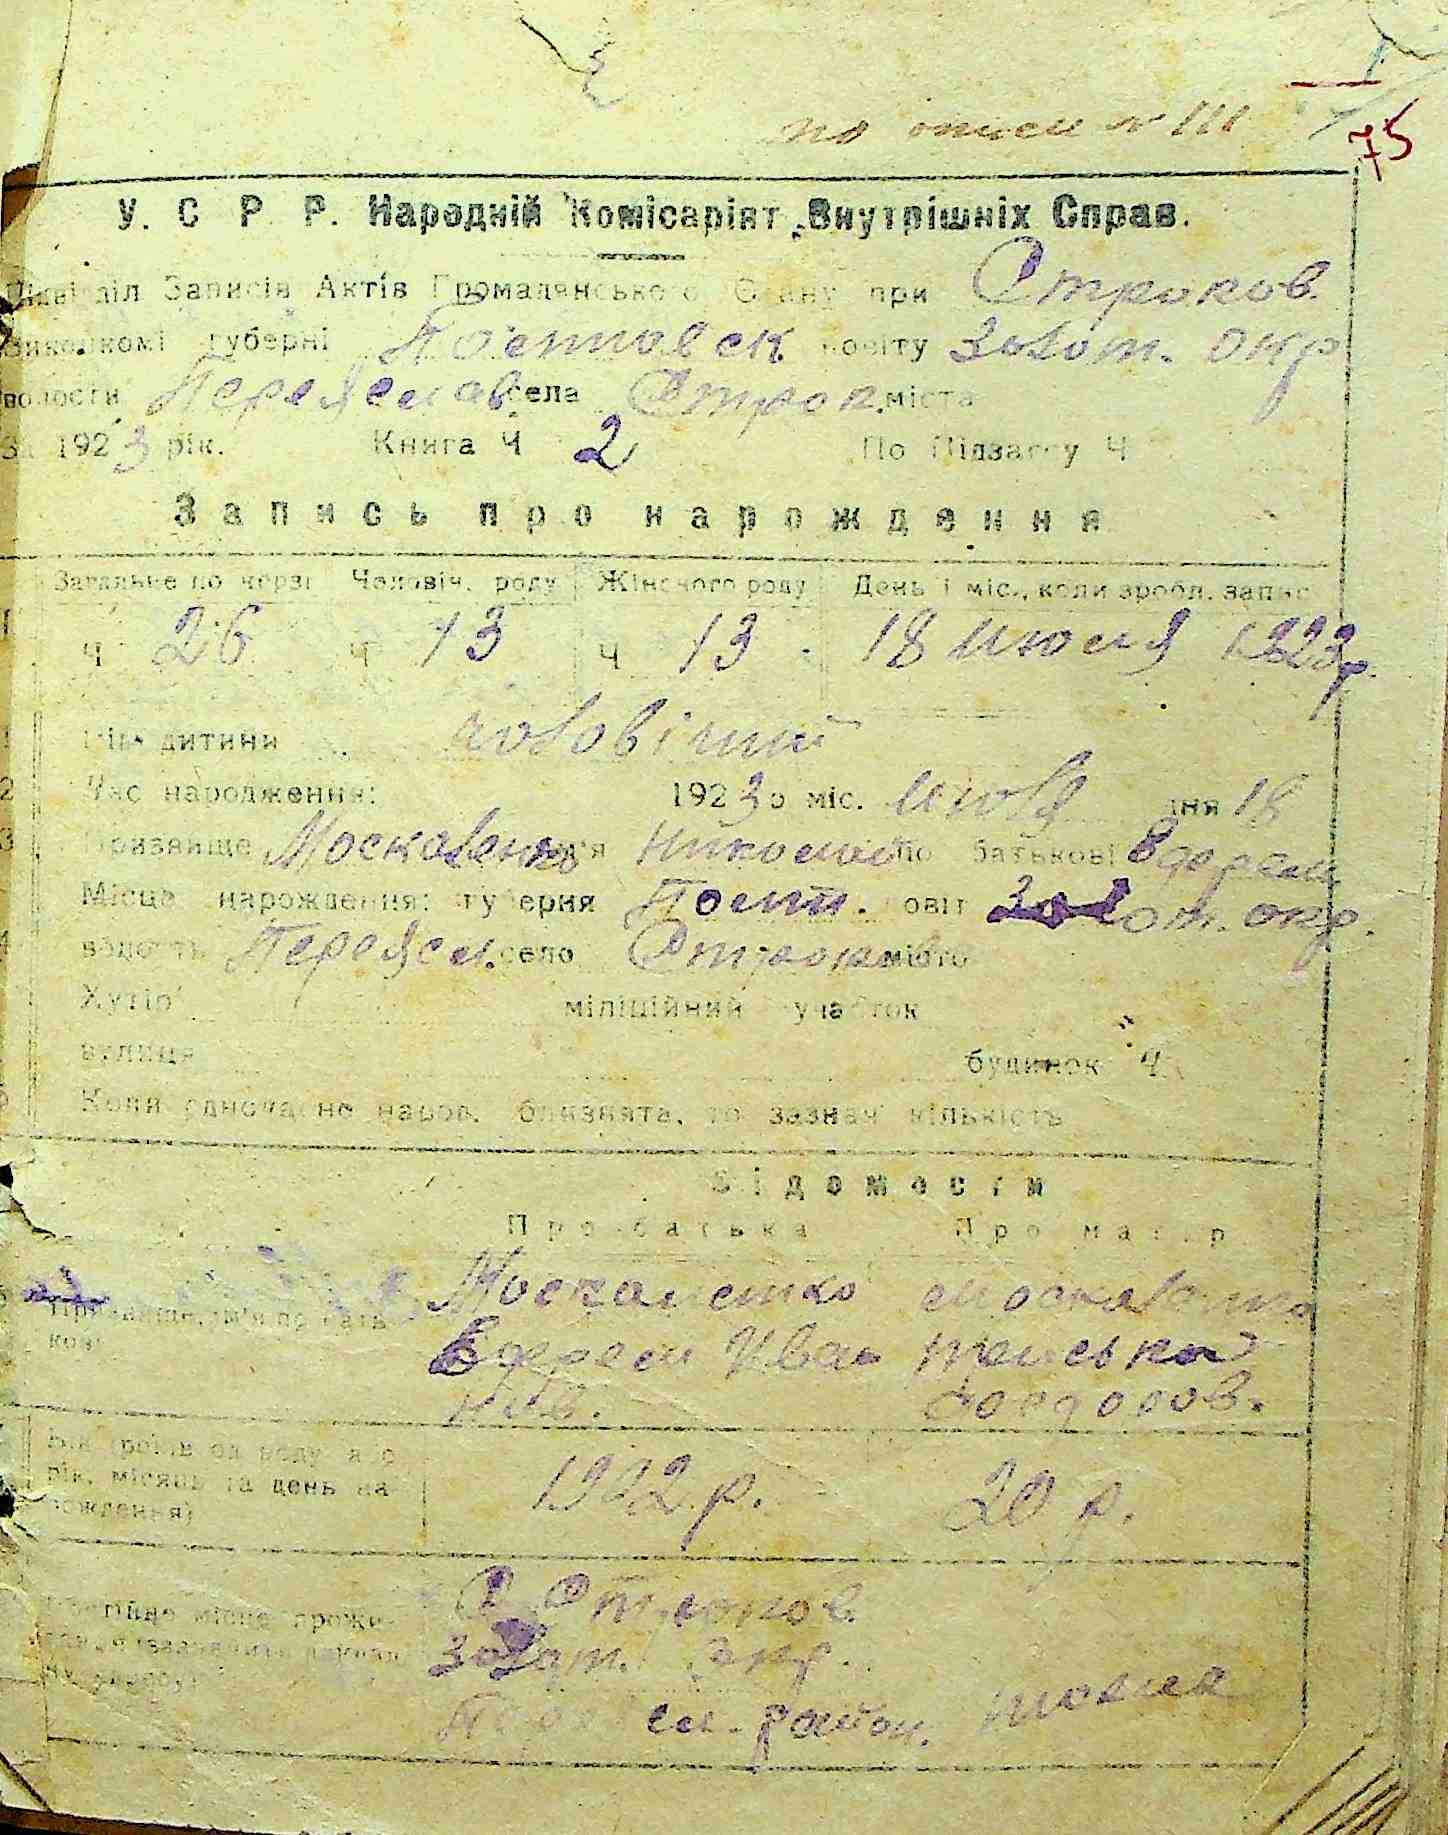 по описи № 111
75
У. С. Р. Р. Народній Комісаріят Внутрішніх Справ.
Підвідділ Записів Актів Громадянського Стану при Строков.
Виконкомі губерні Полтавск повіту Золот. окр
волости Переяслав села Строк. міста
За 1923 рік. Книга Ч 2 По Підзагсу Ч
Запись про нарождення
Загальне по черзі Человіч. роду Жіночого роду День і міс., коли зробл. запис
Ч 26 Ч 13 Ч 13 18 Июля 1923 р.
1 Пів дитини чоловічий
2 Час народження: 1923 р міс. Июля дня 18
3 Призвище Москаленко ім'я Николай по батькові Ефрем
Місце нарождення: губерня Полт. повіт Золот. окр.
волость Переясл. село Строков місто
Хутір міліційний участок
вулиця будинок Ч.
Коли одночасне народ. близнята, то зазнач кількість
Відомости
Про батька Про матір
Призвище, ім'я по бать- Москаленко Москаленко
кові Ефрем Иван
нов.
Вік (років од роду або
рік, місяць та день на- 1902 р. 20 р.
рождення)
Постійне місце прожи- С Строков.
Золот. окр.
Пере сл. район.